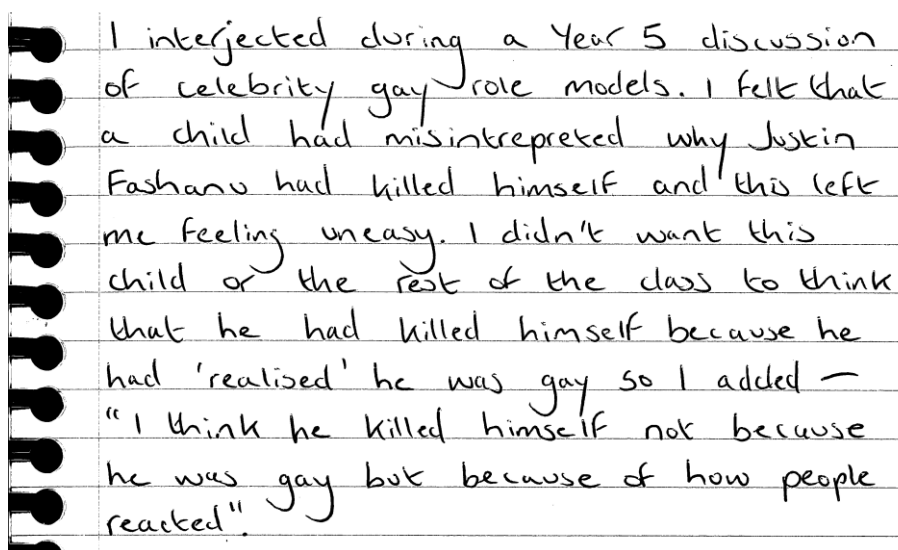 I interjected during a Year 5 discussion
of celebrity gay role models. I felt that
a child had misintrepreted why Justin
Fashanu had killed himself and this left
me feeling uneasy. I didn't want this
child or the rest of the class to think
that he had killed himself because he
had 'realised' he was gay so I added —
"I think he killed himself not because
he was gay but because of how people
reacted".